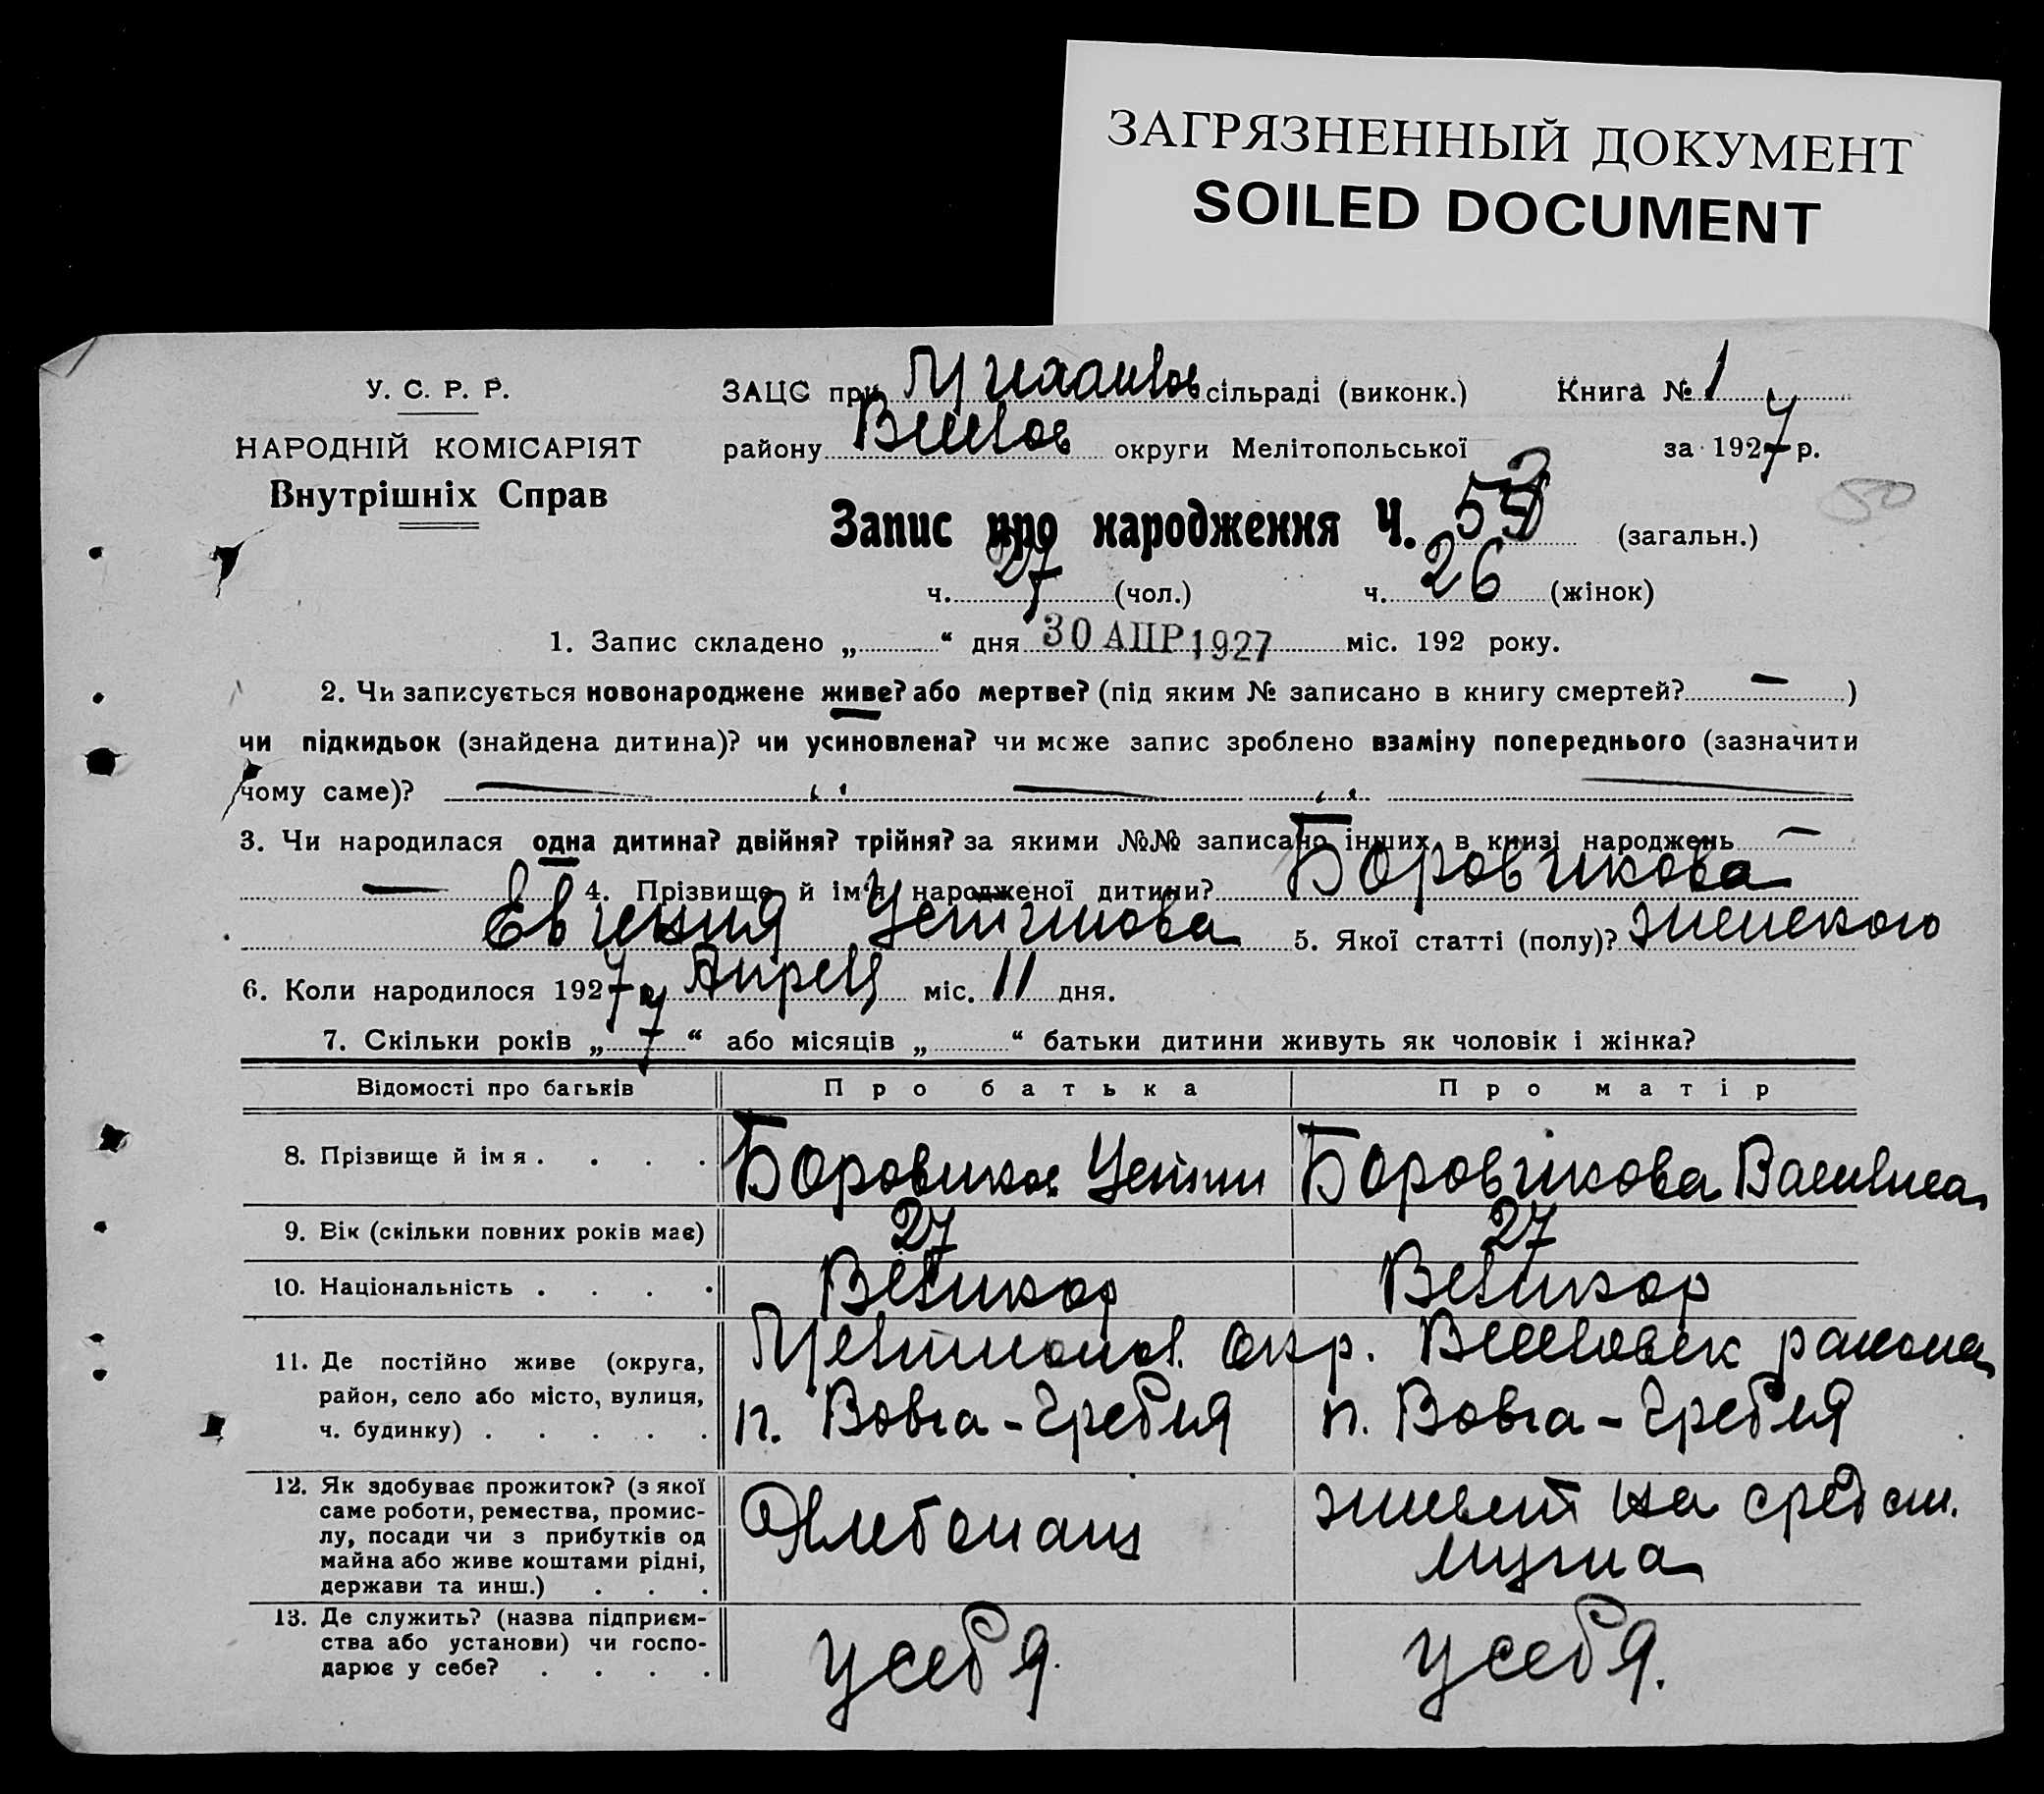 ЗАГРЯЗНЕННЫЙ ДОКУМЕНТ
SOILED DOCUMENT
У. С. Р. Р.
НАРОДНІЙ КОМІСАРІЯТ
Внутрішніх Справ
ЗАЦС при сільраді (виконк.) Книга № 1
району округи Мелітопольської за 1927 р.
Запис про народження Ч. 53 (загальн.)
50
ч. 27 (чол.) ч. 26 (жінок)
1. Запис складено „ “ дня 30 АПР 1927 міс. 192 року.
2. Чи записується новонароджене живе? або мертве? (під яким № записано в книгу смертей? — )
чи підкидьок (знайдена дитина)? чи усиновлена? чи може запис зроблено взаміну попереднього (зазначити
чому саме)? — „ — „ —
3. Чи народилася одна дитина? двійня? трійня? за якими №№ записано інших в книзі народжень —
— 4. Прізвище й ім'я народженої дитини? Боровикова
Евгения Устинова 5. Якої статті (полу)? женского
6. Коли народилося 1927 р. Апреля міс. 11 дня.
7. Скільки років „ 7 “ або місяців „ “ батьки дитини живуть як чоловік і жінка?
Відомості про батьків Про батька Про матір
8. Прізвище й ім я . . . . Боровиков Устин Боровикова Василиса
9. Вік (скільки повних років має) 27 27
10. Національність . . . . Великор Великор
11. Де постійно живе (округа, район, село або місто, вулиця, ч. будинку) . . . . . окр. района
п. Вовча-Гребля п. Вовча-Гребля
12. Як здобуває прожиток? (з якої саме роботи, ремества, промислу, посади чи з прибутків од майна або живе коштами рідні, держави та инш.) . . . Хлебопаш живет на средст. мужа
13. Де служить? (назва підприємства або установи) чи господарює у себе? . . . . у себя. у себя.